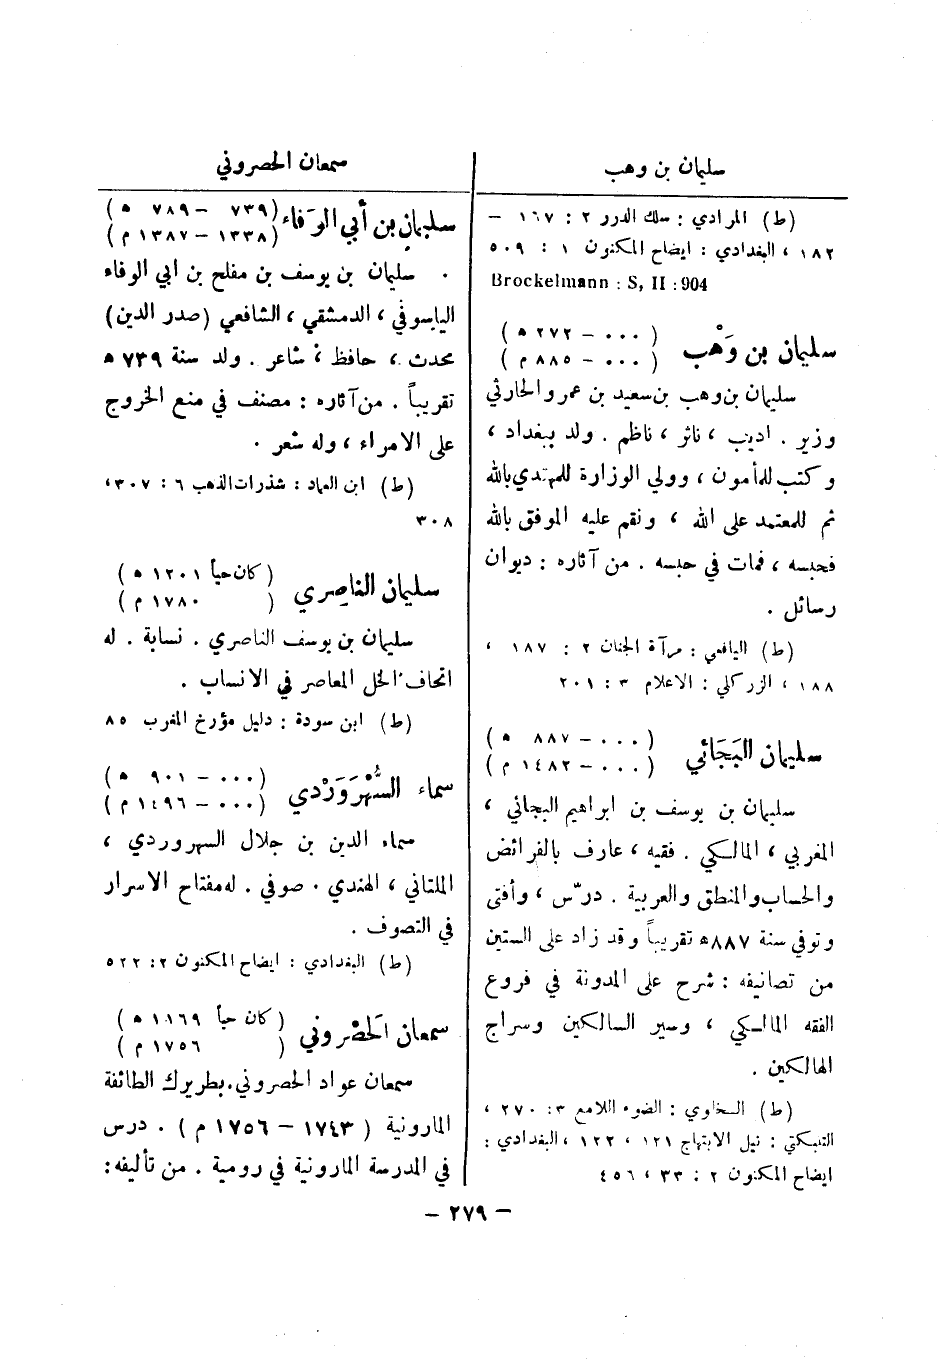 سليمان بن وهب
(ط) المرادي : سلك الدرر ٢ : ١٦٧ –
١٨٢ ، البغدادي : ايضاح المكنون ١ : ٥٠٩
Brockelmann : S, II : 904
سليمان بن وَهْب
(٠٠٠ – ٢٧٢ ه)
(٠٠٠ – ٨٨٥ م)
سليمان بن وهب بن سعيد بن عمرو الحارثي
وزير . اديب ، ناثر ، ناظم . ولد ببغداد ،
وكتب للمأمون ، وولي الوزارة للمهتدي بالله
ثم للمعتمد على الله ، ونقم عليه الموفق بالله
فحبسه ، فمات في حبسه . من آثاره : ديوان
رسائل .
(ط) اليافعي : مرآة الجنان ٢ : ١٨٧ ،
١٨٨ ، الزركلي : الاعلام ٣ : ٢٠١
سليمان البَجَائي
(٠٠٠ – ٨٨٧ ه)
(٠٠٠ – ١٤٨٢ م)
سليمان بن يوسف بن ابراهيم البجائي ،
المغربي ، المالكي . فقيه ، عارف بالفرائض
والحساب والمنطق والعربية . درّس ، وأفتى
وتوفي سنة ٨٨٧ه تقريباً وقد زاد على الستين
من تصانيفه : شرح على المدونة في فروع
الفقه المالكي ، وسير السالكين وسراج
الهالكين .
(ط) السخاوي : الضوء اللامع ٣: ٢٧٠ ،
التنبكتي : نيل الابتهاج ١٢١ ، ١٢٢ ، البغدادي :
ايضاح المكنون ٢ : ٣٣ ، ٤٥٦
سمعان الحصروني
سليمان بن أبي الوَفاء
(٧٣٩ – ٧٨٩ ه)
(١٣٣٨ – ١٣٨٧ م)
سليمان بن يوسف بن مفلح بن ابي الوفاء
الياسوفي ، الدمشقي ، الشافعي (صدر الدين)
محدث ، حافظ ، شاعر . ولد سنة ٧٣٩ ه
تقريباً . من آثاره : مصنف في منع الخروج
على الامراء ، وله شعر .
(ط) ابن العماد : شذرات الذهب ٦ : ٣٠٧،
٣٠٨
سليمان الناصِري
(كان حياً ١٢٠١ ه)
( ١٧٨٠ م)
سليمان بن يوسف الناصري . نسابة . له
اتحاف الخل المعاصر في الانساب .
(ط) ابن سودة : دليل مؤرخ المغرب ٨٥
سماء السُّهْرَوَرْدي
(٠٠٠ – ٩٠١ ه)
(٠٠٠ – ١٤٩٦ م)
سماء الدين بن جلال السهروردي ،
الملتاني ، الهندي . صوفي . له مفتاح الاسرار
في التصوف .
(ط) البغدادي : ايضاح المكنون ٢: ٥٢٢
سمعان الحَصْروني
(كان حياً ١١٦٩ ه)
( ١٧٥٦ م)
سمعان عواد الحصروني . بطريرك الطائفة
المارونية ( ١٧٤٣ – ١٧٥٦ م ) . درس
في المدرسة المارونية في رومية . من تأليفه :
– ٢٧٩ –